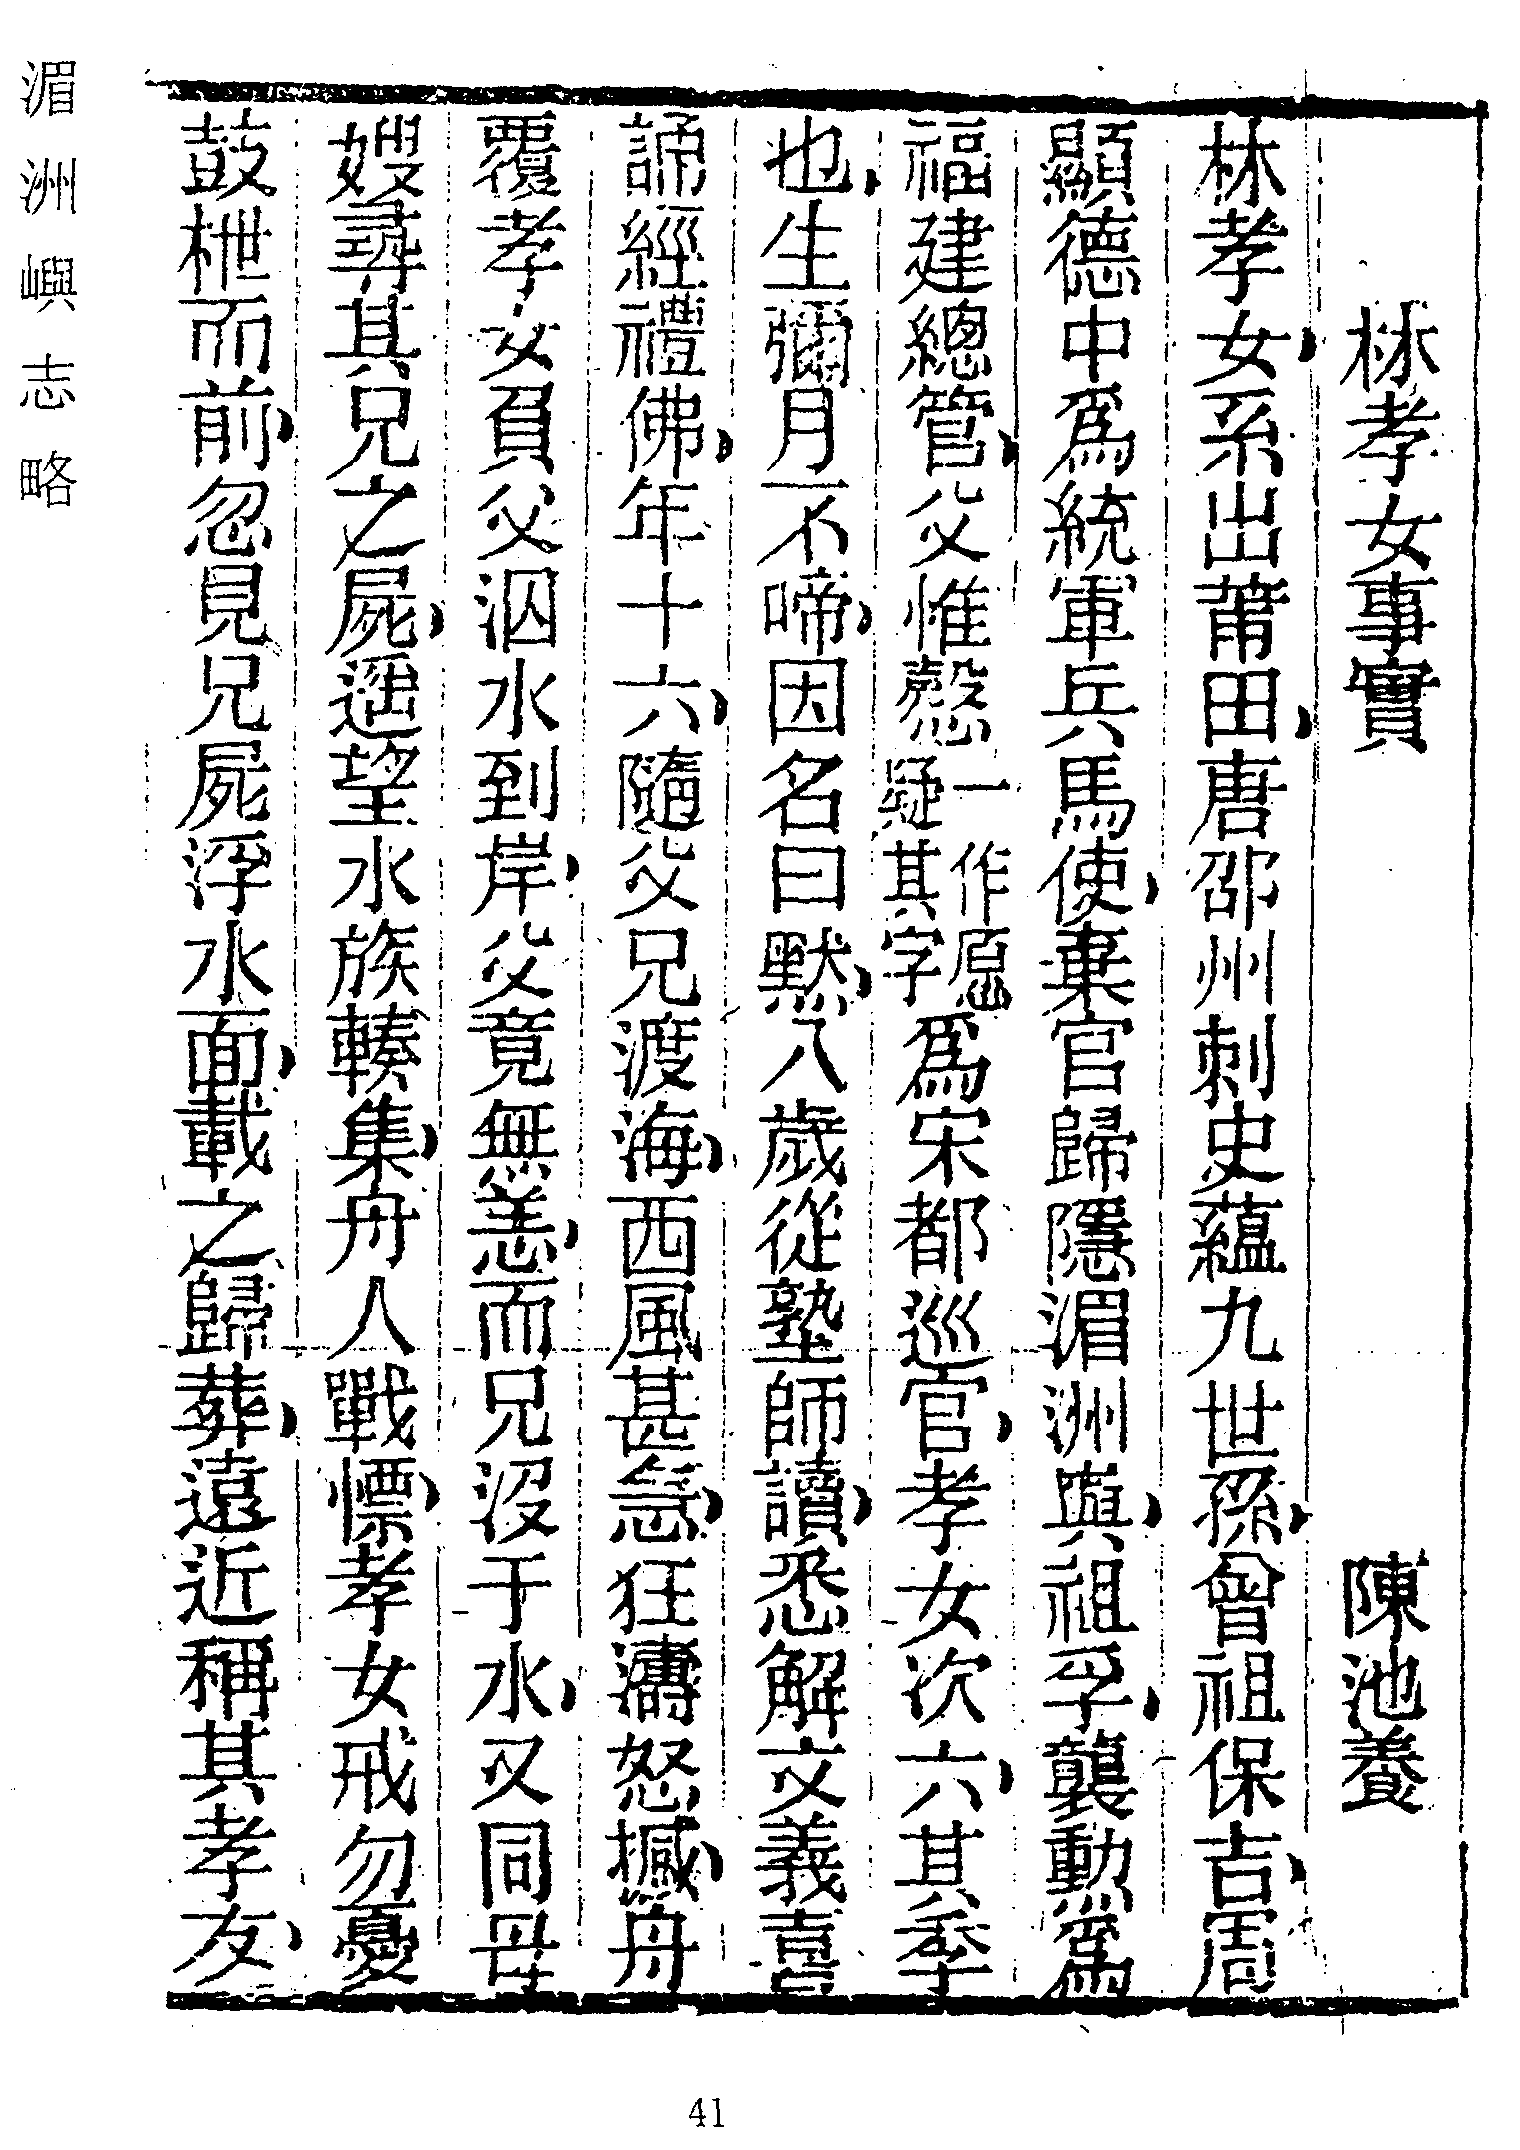 林孝女事實　陳池養
林孝女系出莆田唐邵州刺史蘊九世孫曾祖保吉周
顯德中爲統軍兵馬使棄官歸隱湄洲嶼祖孚襲勳爲
福建總管父惟慤一作愿疑其字爲宋都巡官孝女次六其季
也生彌月不啼因名曰默八歲從塾師讀悉解文義喜
誦經禮佛年十六隨父兄渡海西風甚急狂濤怒撼舟
覆孝女負父泅水到岸父竟無恙而兄沒于水又同母
嫂尋其兄之屍遥望水族輳集舟人戰慄孝女戒勿憂
鼓枻而前忽見兄屍浮水面載之歸葬遠近稱其孝友
湄洲嶼志略
41